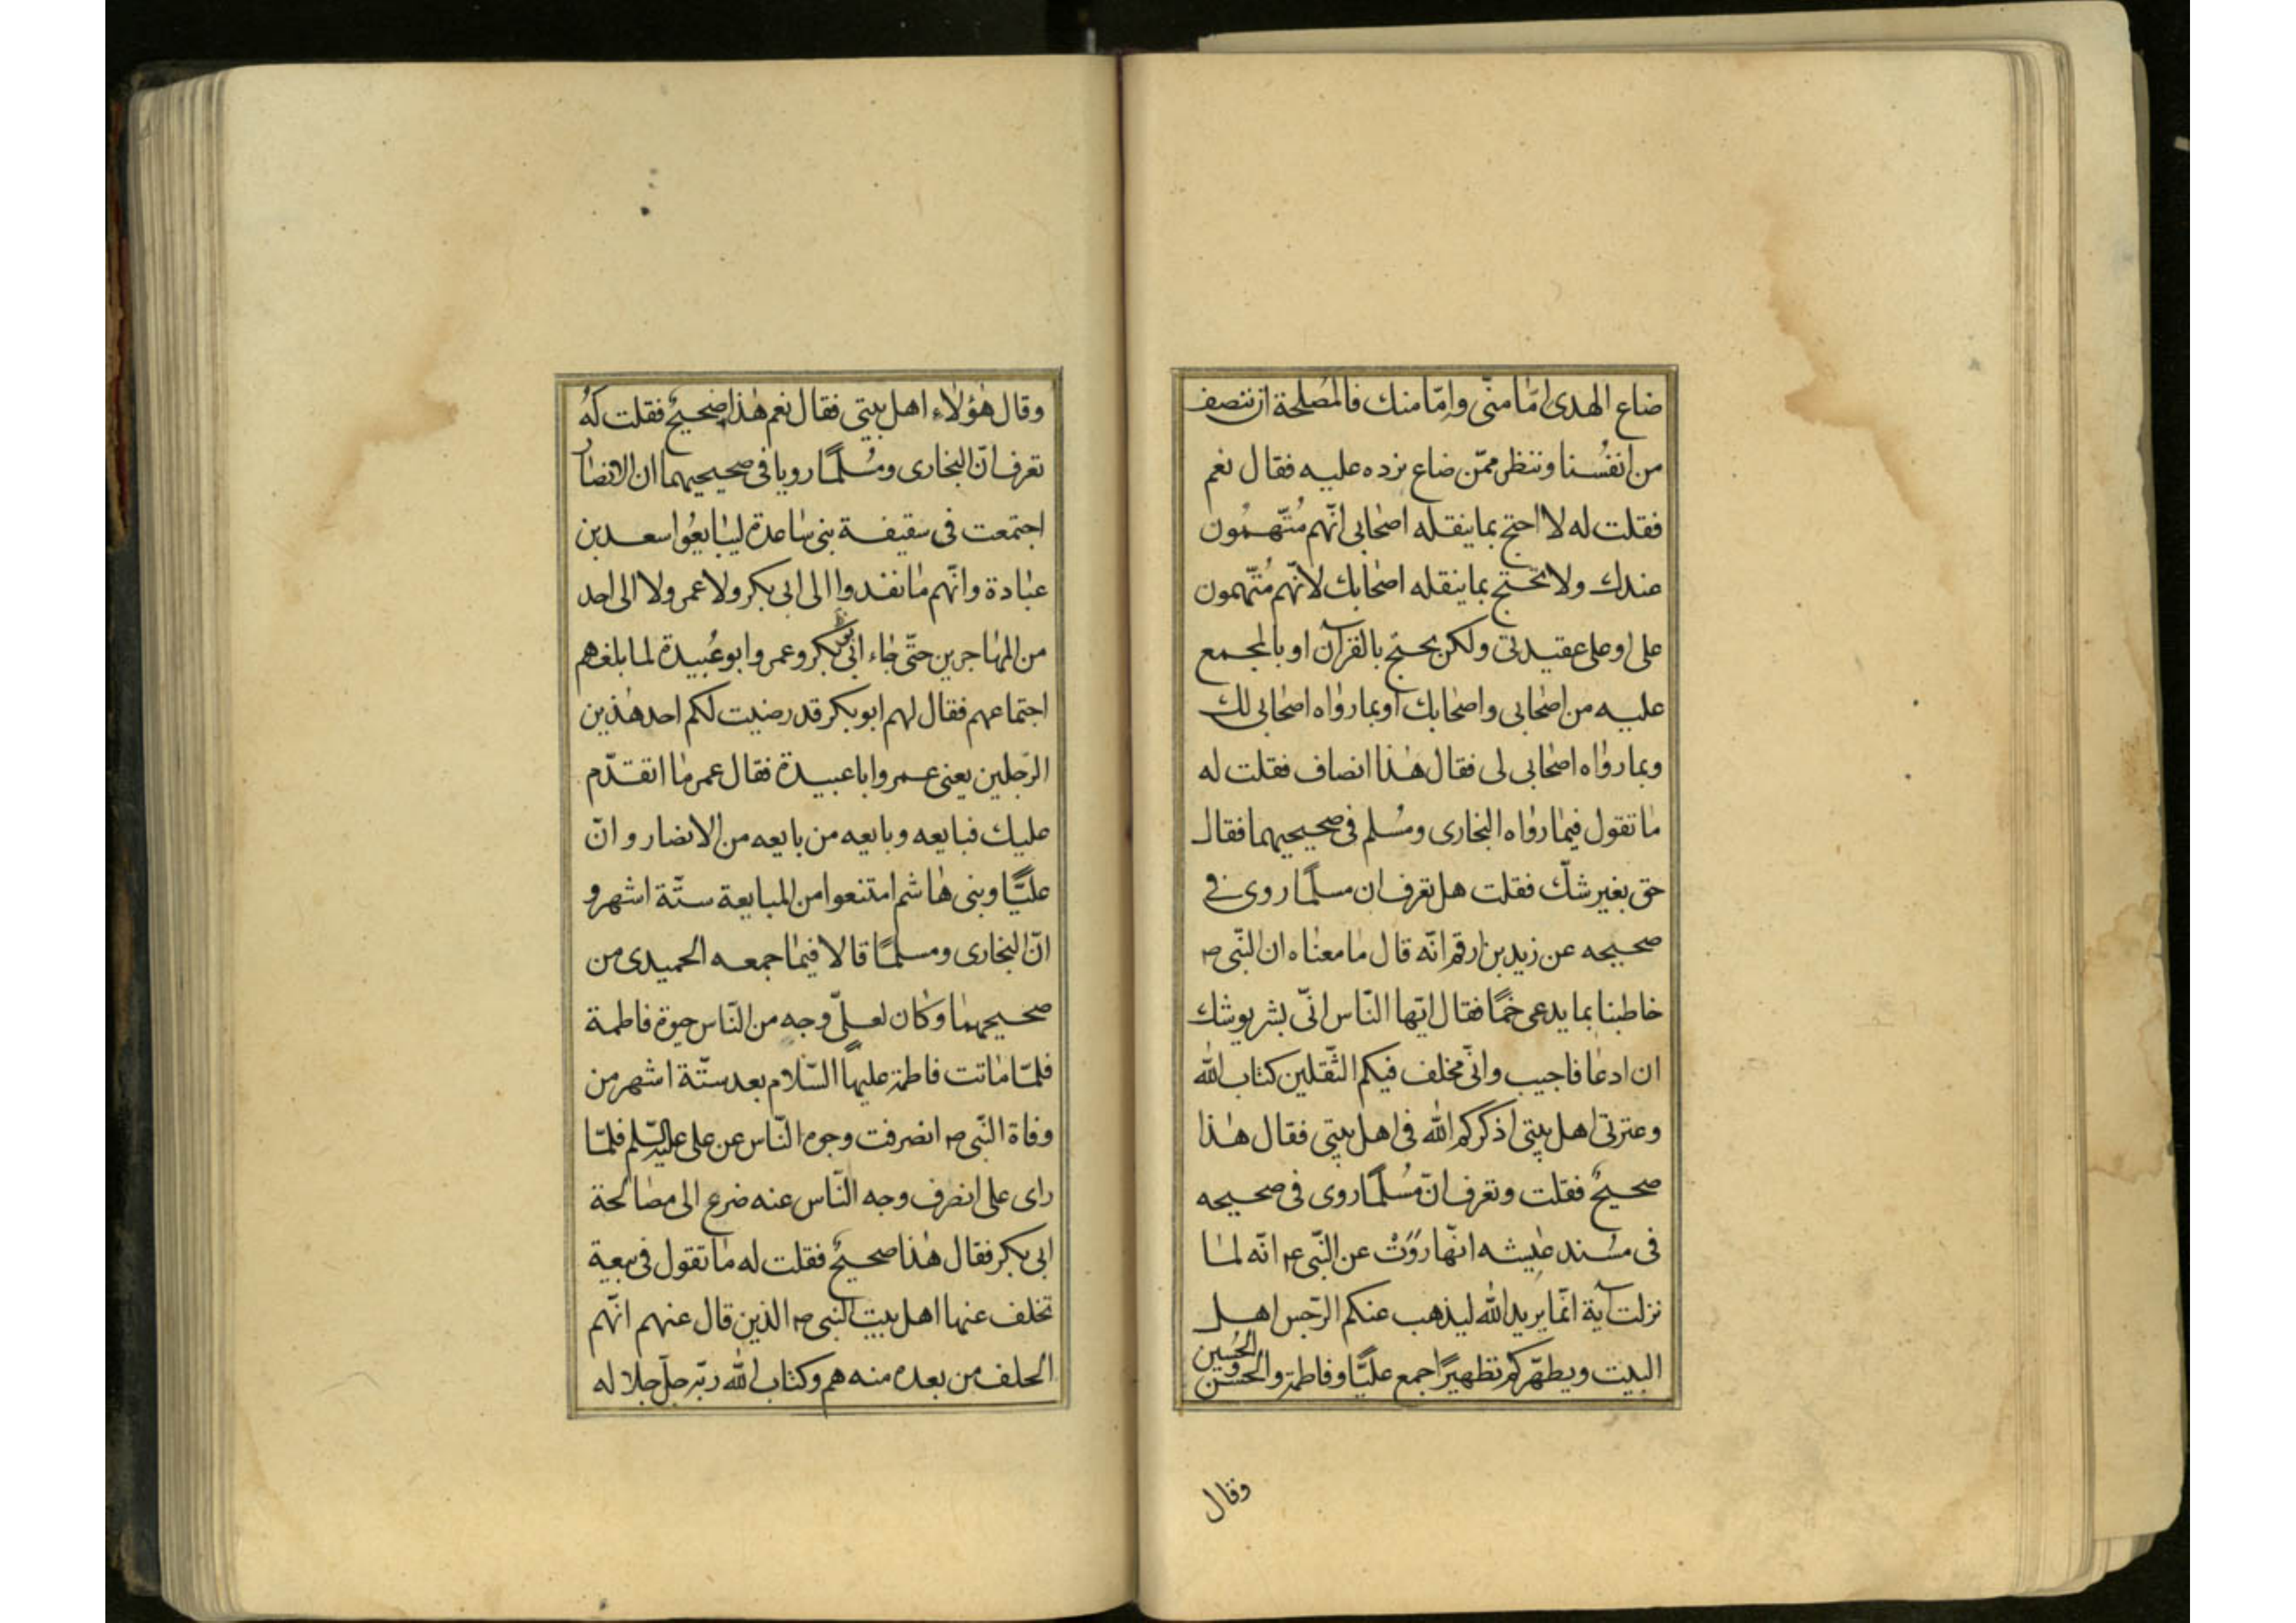 ضاع الهدى امّا منّى وامّا منك فالمصلحة ان ننصف
من انفُسنا وننظر ممّن ضاع نرده عليه فقال نعم
فقلت له لا احتج بما ينقله اصحابى انّهم مُتّهمُون
عندك ولا تحتج بما ينقله اصحابك لانّهم مُتّهمون
على او على عقيدتى ولكن نحتج بالقرآن او بالمجمع
عليه من اصحابى واصحابك او بما رواه اصحابى لك
وبما رواه اصحابى لى فقال هذا انصاف فقلت له
ما تقول فيما رواه البخارى ومُسلم فى صحيحيهما فقال
حق بغير شكّ فقلت هل تعرف ان مسلمًا روى فى
صحيحه عن زيد بن ارقم انّه قال ما معناه ان النّبى ص
خاطبنا بما يدعى خمًّا فقال ايّها النّاس انّى بشر يوشك
ان ادعا فاجيب وانّى مخلف فيكم الثّقلين كتاب الله
وعترتى اهل بيتى اذكركم الله فى اهل بيتى فقال هذا
صحيحٌ فقلت وتعرف انّ مُسلمًا روى فى صحيحه
فى مسُند عايشه انّها روَتْ عن النّبى ع انّه لما
نزلت آية انّما يريد الله ليذهب عنكم الرّجس اهل
البيت ويطهّركم تطهيرًا جمع عليًّا وفاطمة والحسن والحُسين
وقال
وقال هؤلاء اهل بيتى فقال نعم هذا صحيحٌ فقلت لهُ
تعرف انّ البخارى ومُسلمًا رويا فى صحيحيهما ان الانصار
اجتمعت فى سقيفة بنى ساعدة ليبايعُوا سعد بن
عبادة وانّهم ما نفدوا الى ابى بكر ولا عمر ولا الى احد
من المهاجرين حتّى جاء ابى بكر وعمر وابو عُبيدة لما بلغهم
اجتماعهم فقال لهم ابو بكر قد رضيت لكم احد هذين
الرّجلين يعنى عمر وابا عبيدة فقال عمر ما اتقدّم
عليك فبايعه وبايعه من بايعه من الانصار وانّ
عليًّا وبنى هاشم امتنعوا من المبايعة ستّة اشهر و
انّ البخارى ومسلمًا قالا فيما جمعه الحميدى من
صحيحيهما وكان لعلىّ وجه من النّاس حيوة فاطمة
فلمّا ماتت فاطمة عليها السّلام بعد ستّة اشهر من
وفاة النّبى ص انصرفت وجوه النّاس عن على عليه السّلم فلمّا
راى على انصرف وجه النّاس عنه ضرع الى مصالحة
ابى بكر فقال هذا صحيحٌ فقلت له ما تقول فى بيعة
تخلف عنها اهل بيت النبى ص الذين قال عنهم انّهم
الخلف من بعده منه هم وكتاب الله ربّه جلّ جلاله